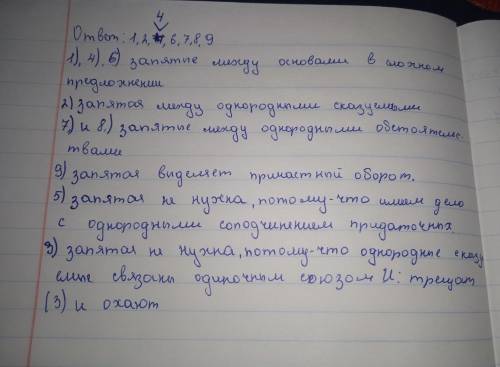 4
Ответ: 1,2, 6,7,8,9
1), 4), 6) запятые между основами в сложном
предложении
2) запятая между однородными сказуемыми
7) и 8) запятые между однородными обстоятельс-
твами
9) запятая выделяет причастный оборот.
5) запятая не нужна, потому-что имеем дело
с однородными соподчинением придаточных
3) запятая не нужна, потому-что однородные сказу
емые связаны одиночным союзом И: трещат
(3) и охают